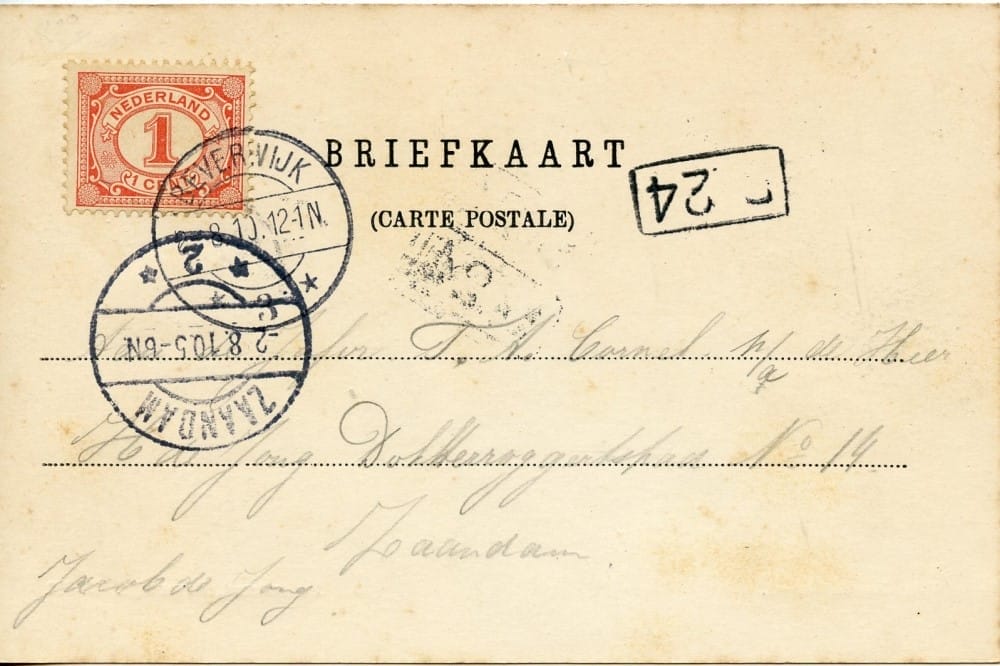 NEDERLAND
1
1 CENT
BEVERWIJK
2.8.10.12-1N.
BRIEFKAART
(CARTE POSTALE)
24
2
-2.8.10.5-6N
ZAANDAM
T. A. Cornel. p/a de Heer
H de Jong No 14
Zaandam
Jacob de Jong